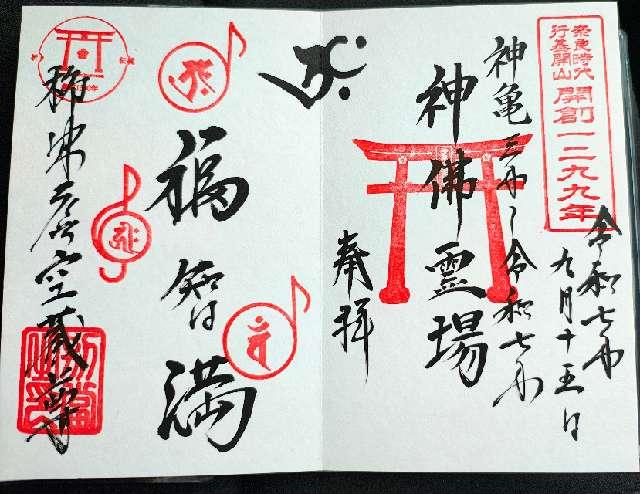 奈良時代
行基開山
開創一二九九年
令和七年
九月十五日
神亀三年〜令和七年
神佛霊場
奉拝
福智満
虚空蔵尊